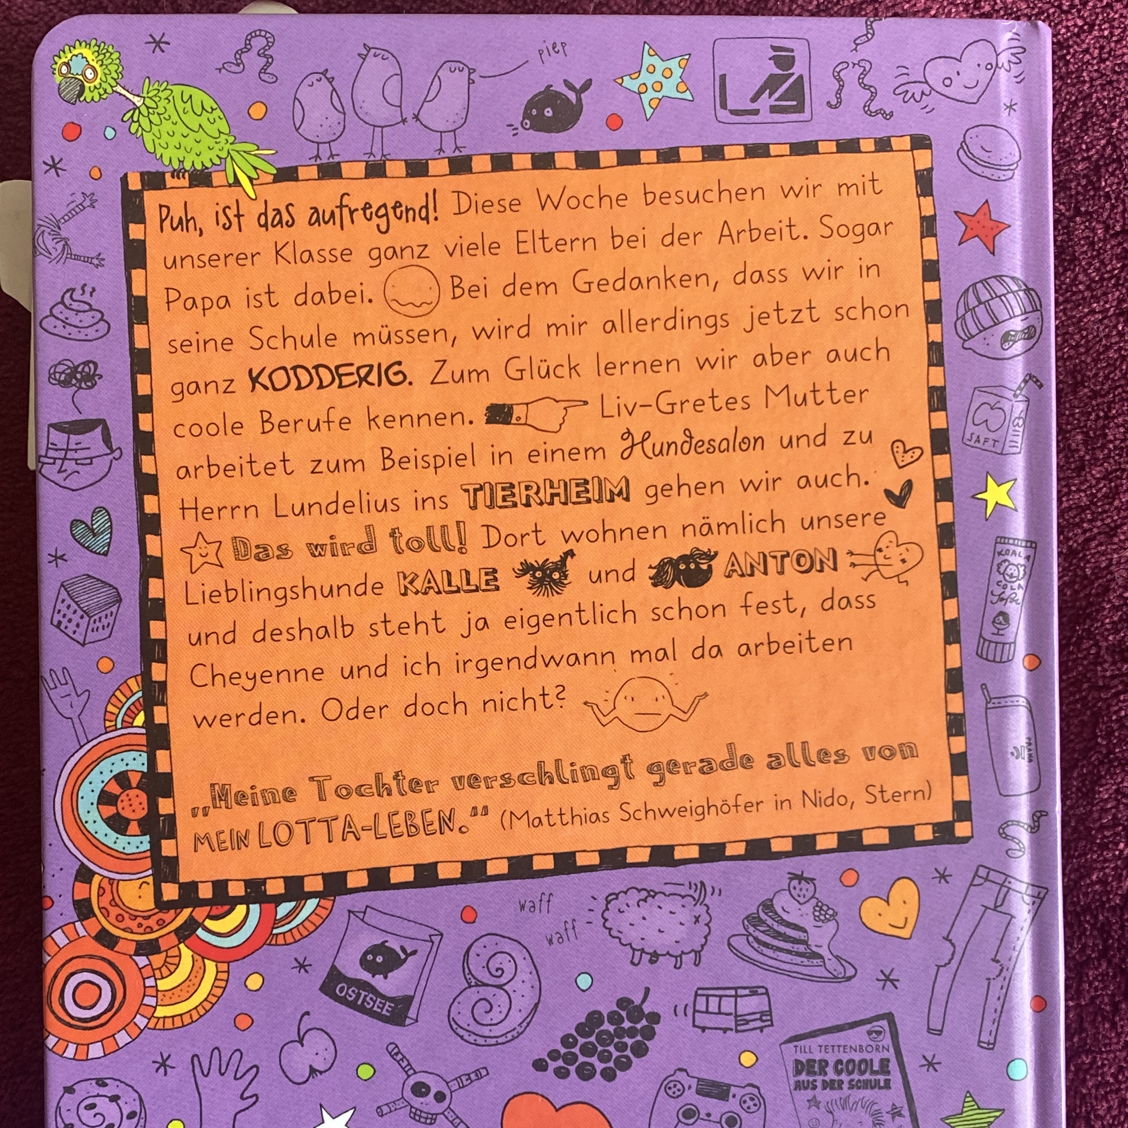 piep
Puh, ist das aufregend! Diese Woche besuchen wir mit
unserer Klasse ganz viele Eltern bei der Arbeit. Sogar
Papa ist dabei. Bei dem Gedanken, dass wir in
seine Schule müssen, wird mir allerdings jetzt schon
ganz KODDERIG. Zum Glück lernen wir aber auch
coole Berufe kennen. Liv-Gretes Mutter
arbeitet zum Beispiel in einem Hundesalon und zu
Herrn Lundelius ins TIERHEIM gehen wir auch.
Das wird toll! Dort wohnen nämlich unsere
Lieblingshunde KALLE und ANTON
und deshalb steht ja eigentlich schon fest, dass
Cheyenne und ich irgendwann mal da arbeiten
werden. Oder doch nicht?
„Meine Tochter verschlingt gerade alles von
MEIN LOTTA-LEBEN.“ (Matthias Schweighöfer in Nido, Stern)
SAFT
KOALA
COLA
waff
waff
OSTSEE
TILL TETTENBORN
DER COOLE
AUS DER SCHULE